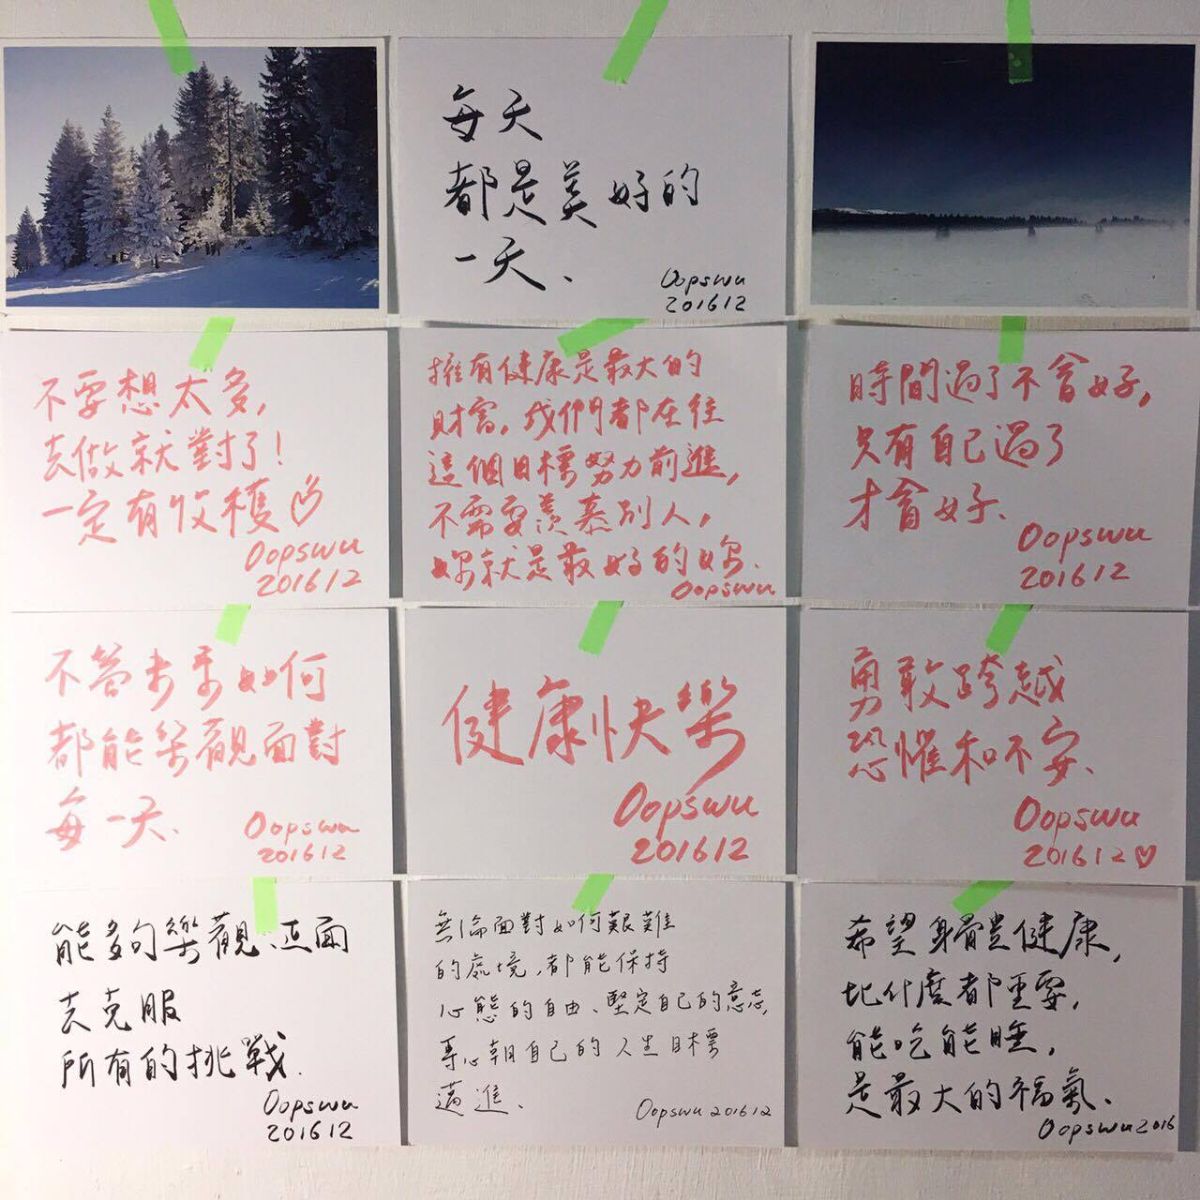 每天
都是美好的
一天、
Oopswu
201612
不要想太多,
去做就對了!
一定有收穫
Oopswu
201612
擁有健康是最大的
財富,我們都在往
這個目標努力前進,
不需要羨慕別人,
妳就是最好的妳.
Oopswu
時間過了不會好,
只有自己過了
才會好.
Oopswu
201612
不管未來如何
都能樂觀面對
每一天.
Oopswu
201612
健康快樂
Oopswu
201612
勇敢跨越
恐懼和不安、
Oopswu
201612♡
能夠樂觀、正面
去克服
所有的挑戰.
Oopswu
201612
無論面對如何艱難
的處境,都能保持
心態的自由、堅定自己的意志,
專心朝自己的人生目標
邁進、
Oopswu 201612
希望身體健康,
比什麼都重要,
能吃能睡,
是最大的福氣、
Oopswu 2016